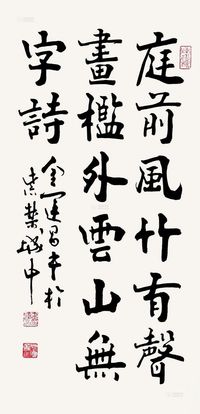 庭前風竹有聲
畫檻外雲山無
字詩
金運昌書於